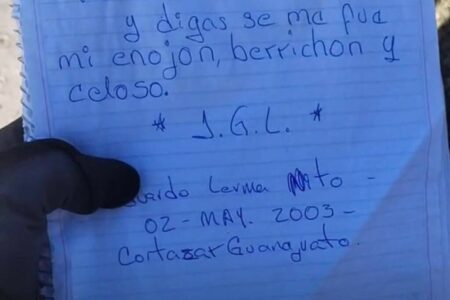 y digas se ma fua
mi enojon, berrichon y
celoso.
* J.G.L. *
uardo Lerma Nito -
02 - MAY. 2003 -
Cortazar Guanajuato.